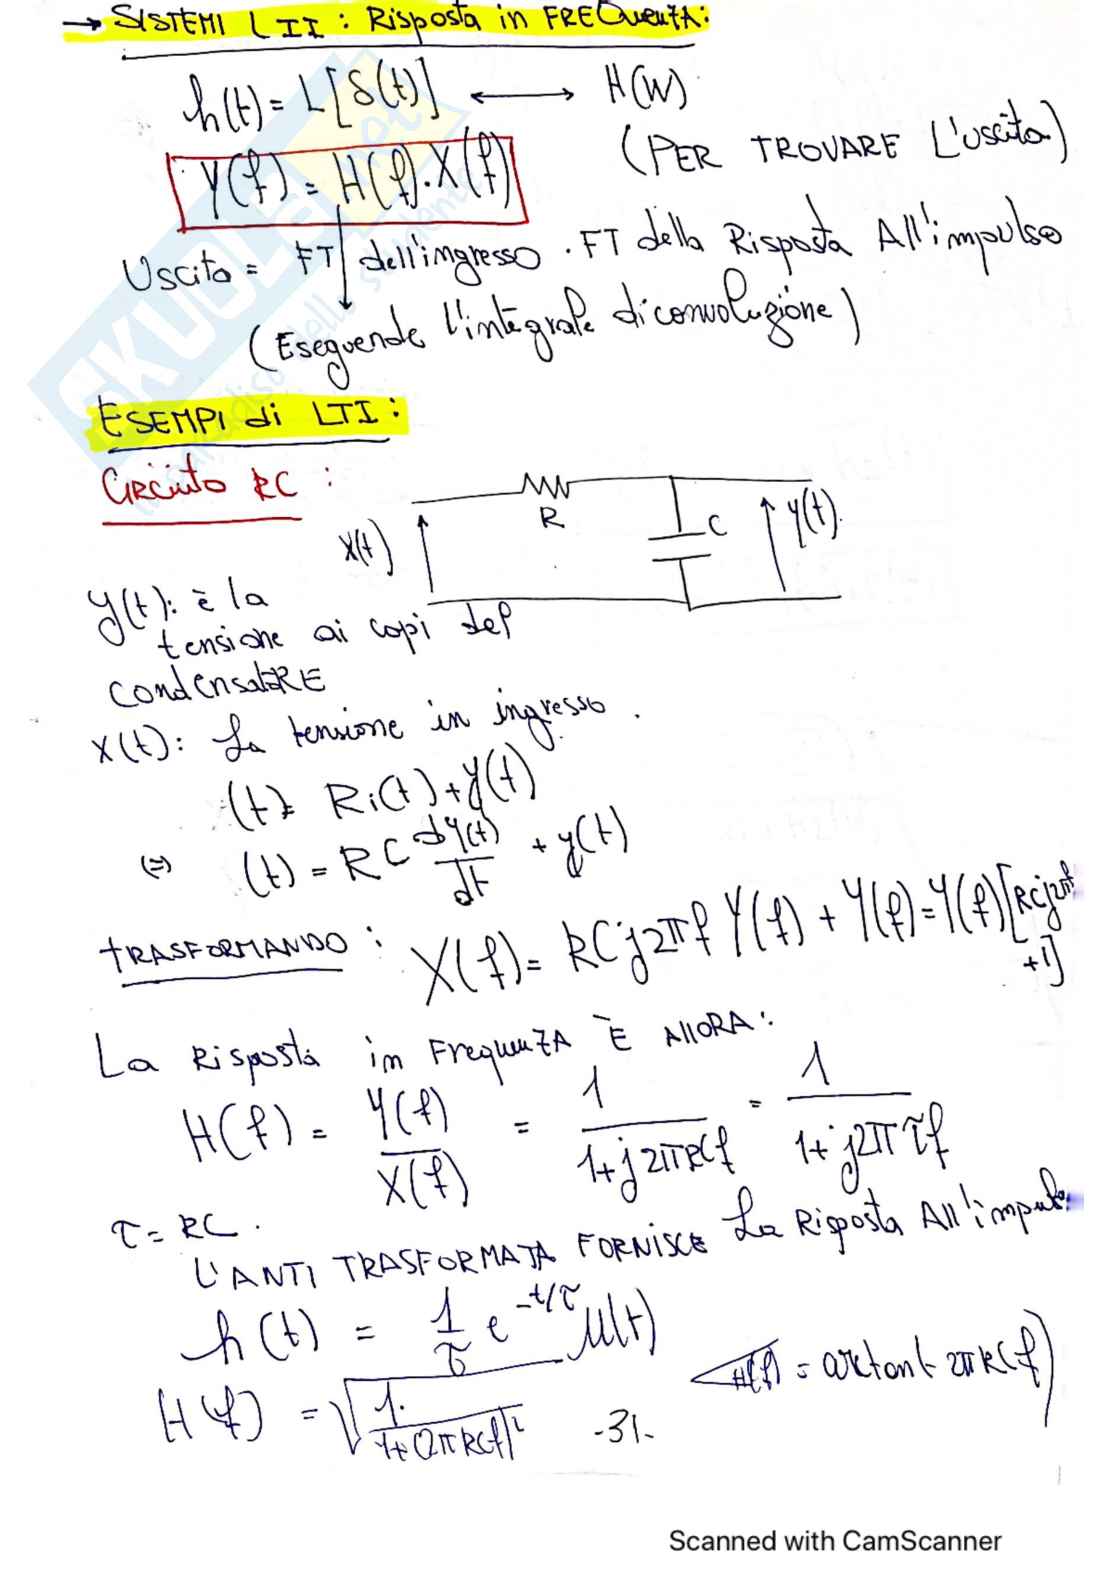 → SISTEMI LTI : Risposta in FREQuenza:
h(t) = L[δ(t)] ⟷ H(W)
Y(f) = H(f)·X(f)
(PER TROVARE L'uscita)
Uscita = FT dell'ingresso · FT della Risposta All'impulso
(Eseguendo l'integrale di convoluzione)
ESEMPI di LTI :
Circuito RC :
X(t) R C y(t)
y(t): è la
tensione ai capi del
condensatoRE
X(t): La tensione in ingresso .
(t) = Ri(t) + y(t)
(=) (t) = RC dy(t)/dt + y(t)
TRASFORMANDO : X(f) = RCj2πf Y(f) + Y(f) = Y(f)[RCj2πf
+1]
La Risposta in FrequenZA È AllORA :
H(f) = Y(f)/X(f) = 1/(1+j2πRCf) = 1/(1+j2πτf)
τ = RC .
L'ANTI TRASFORMATA FORNISCE La Risposta All'impul.
h(t) = 1/τ e^(-t/τ) μ(t)
H(f) = √(1/(1+(2πRCf)²)) ∠H(f) = arctan(-2πRCf)
-31-
Scanned with CamScanner
SKUOLA.net